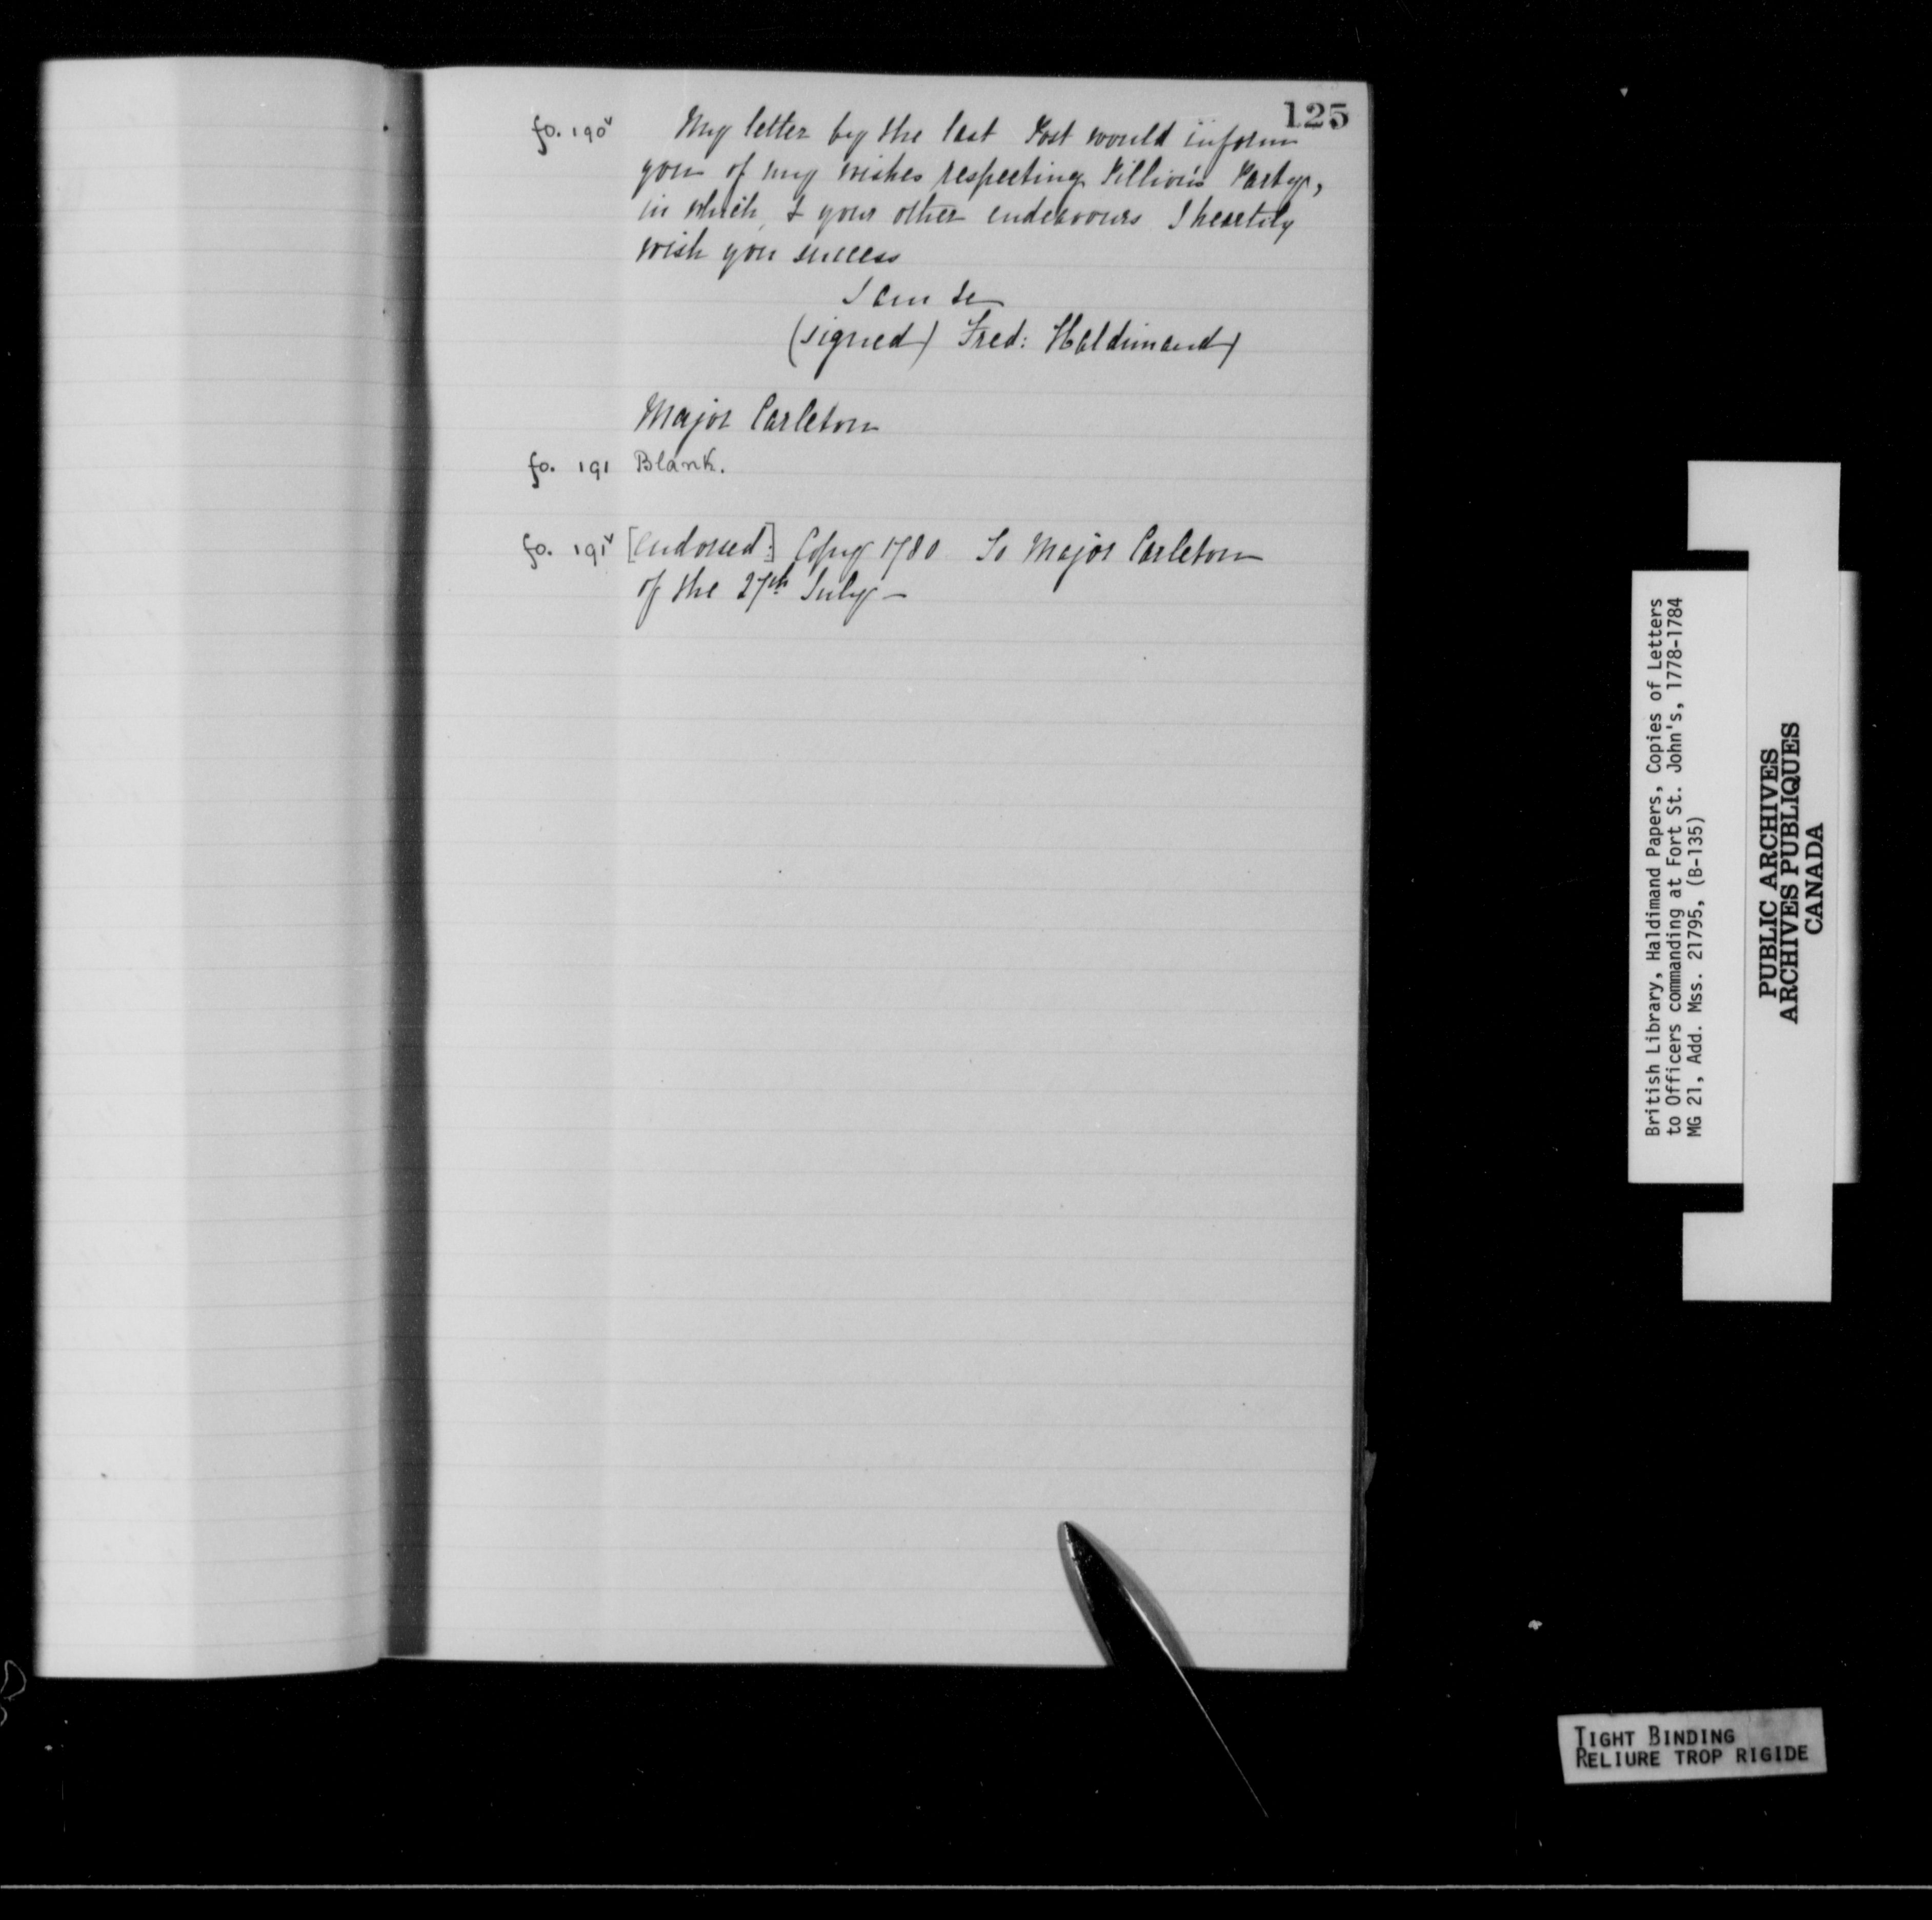 125
fo. 190v My letter by the last Post would inform
you of my wishes respecting Party,
in which, & your other endeavours I heartily
wish you success
I am &c
(signed) Fred: Haldimand
Major Carleton
fo. 191 Blank.
fo. 191v [endorsed:] Copy 1780 To Major Carleton
of the 27th July —
British Library, Haldimand Papers, Copies of Letters
to Officers commanding at Fort St. John's, 1778-1784
MG 21, Add. Mss. 21795, (B-135)
PUBLIC ARCHIVES
ARCHIVES PUBLIQUES
CANADA
TIGHT BINDING
RELIURE TROP RIGIDE